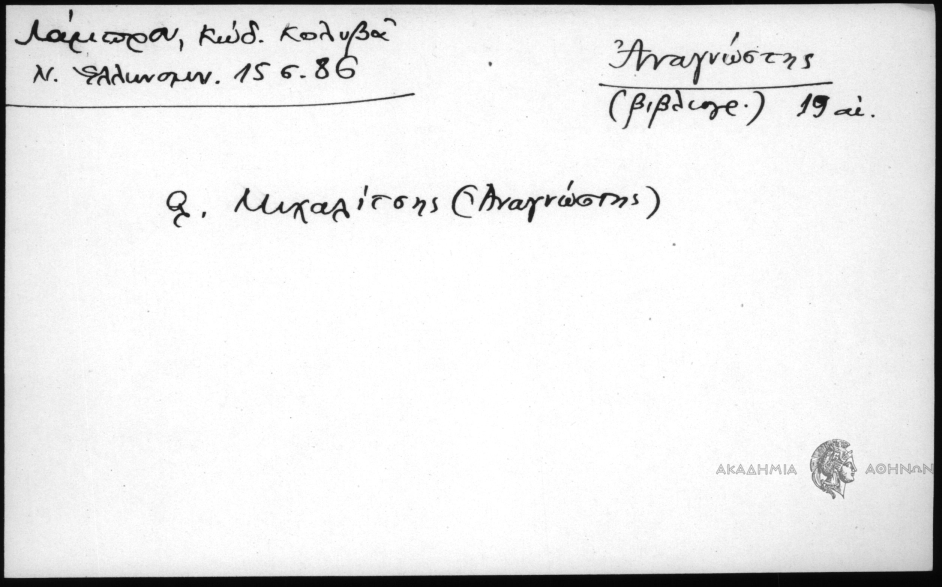 Λάμπρου, Κώδ. Κολυβᾶ
Ν. Ἑλληνομν. 15 σ. 86
Ἀναγνώστης
(βιβλιογρ.) 19 αἰ.
Μιχαλίτσης (Ἀναγνώστης)
ΑΚΑΔΗΜΙΑ ΑΘΗΝΩΝ